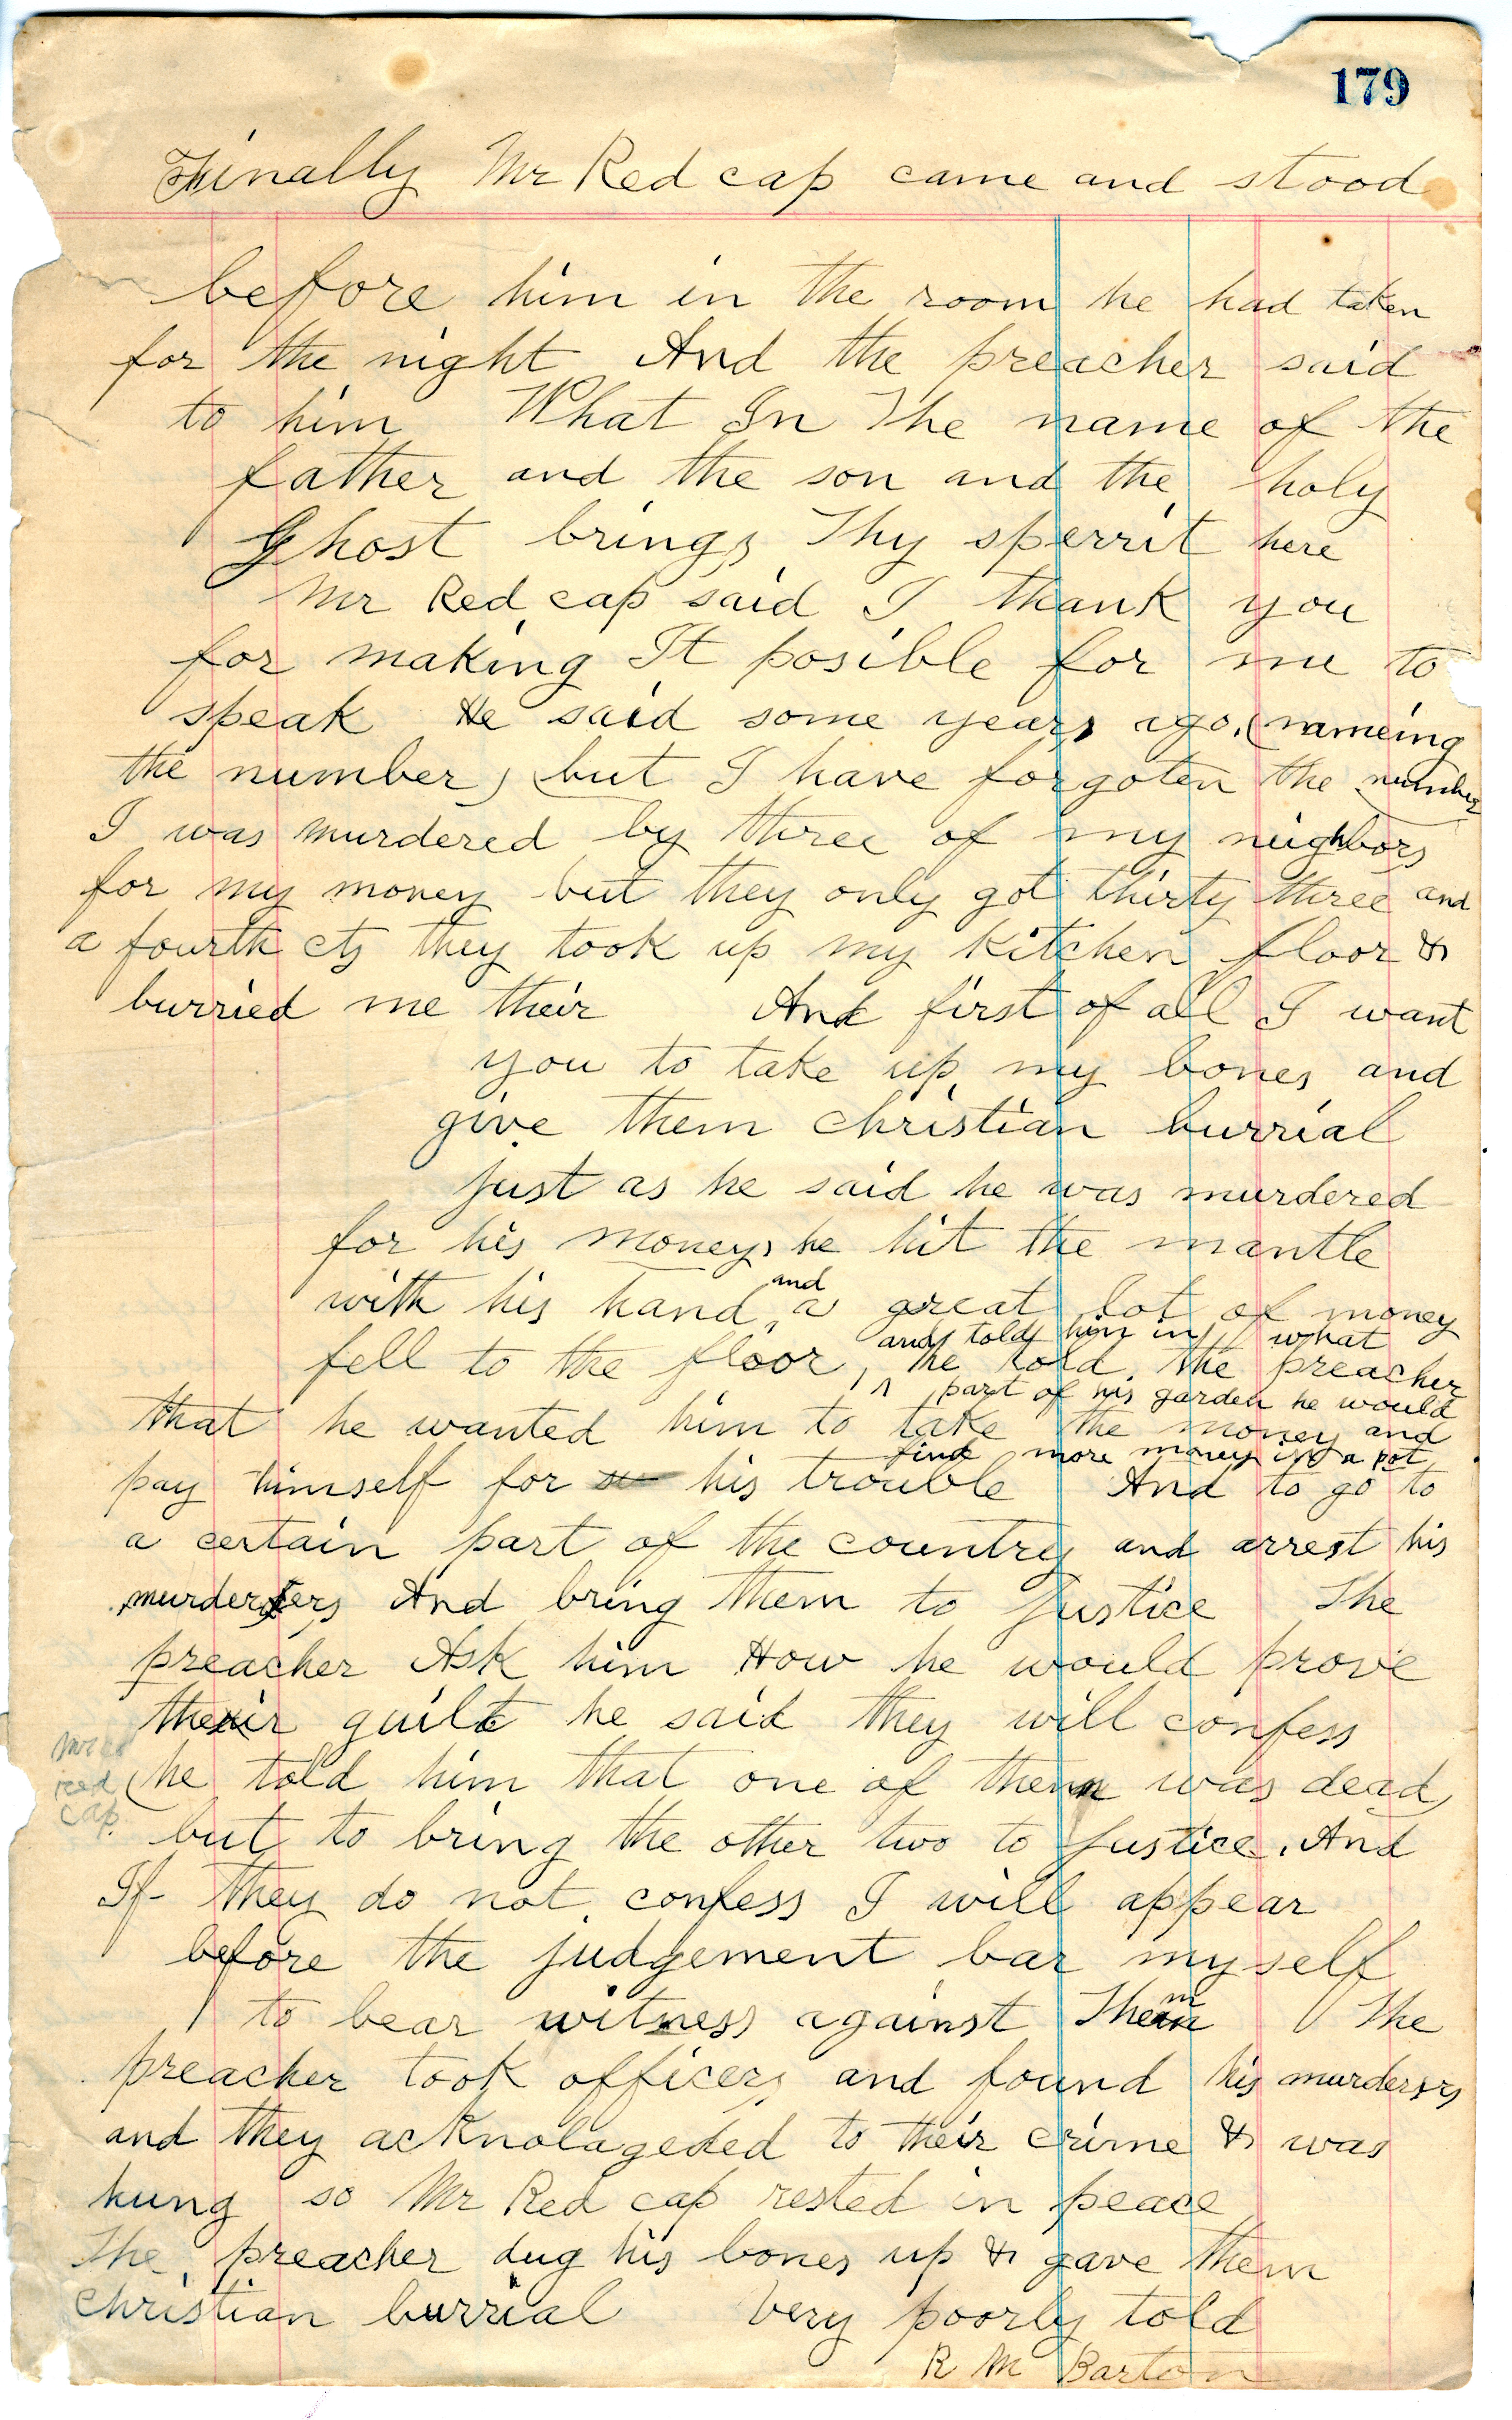 179
Finally Mr Red cap came and stood
before him in the room he had taken
for the night And the preacher said
to him What In The name of the
father and the son and the holy
Ghost brings Thy sperrit here
Mr Red cap said I thank you
for making It posible for me to
speak He said some years ago, (nameing
the number) (but I have forgoten the number)
I was murdered by three of my neighbors
for my money but they only got thirty three and
a fourth cts they took up my kitchen floor &
burried me their And first of all I want
you to take up my bones and
give them christian burrial
just as he said he was murdered
for his money, he hit the mantle
and
with his hand, a great lot of money
and told him in what
fell to the floor, he told the preacher
part of his garden he would
that he wanted him to take the money and
find more money in a pot
pay himself for his trouble And to go to
a certain part of the country and arrest his
murderers And bring them to Justice The
preacher Ask him How he would prove
their guilt he said they will confess
Mr
red
cap
(he told him that one of them was dead)
but to bring the other two to Justice. And
If they do not confess I will appear
before the judgement bar myself
to bear witness against Them The
preacher took officers and found his murderers
and they acknolageded to their crime & was
hung so Mr Red cap rested in peace
The preacher dug his bones up & gave them
christian burrial Very poorly told
R M Barton